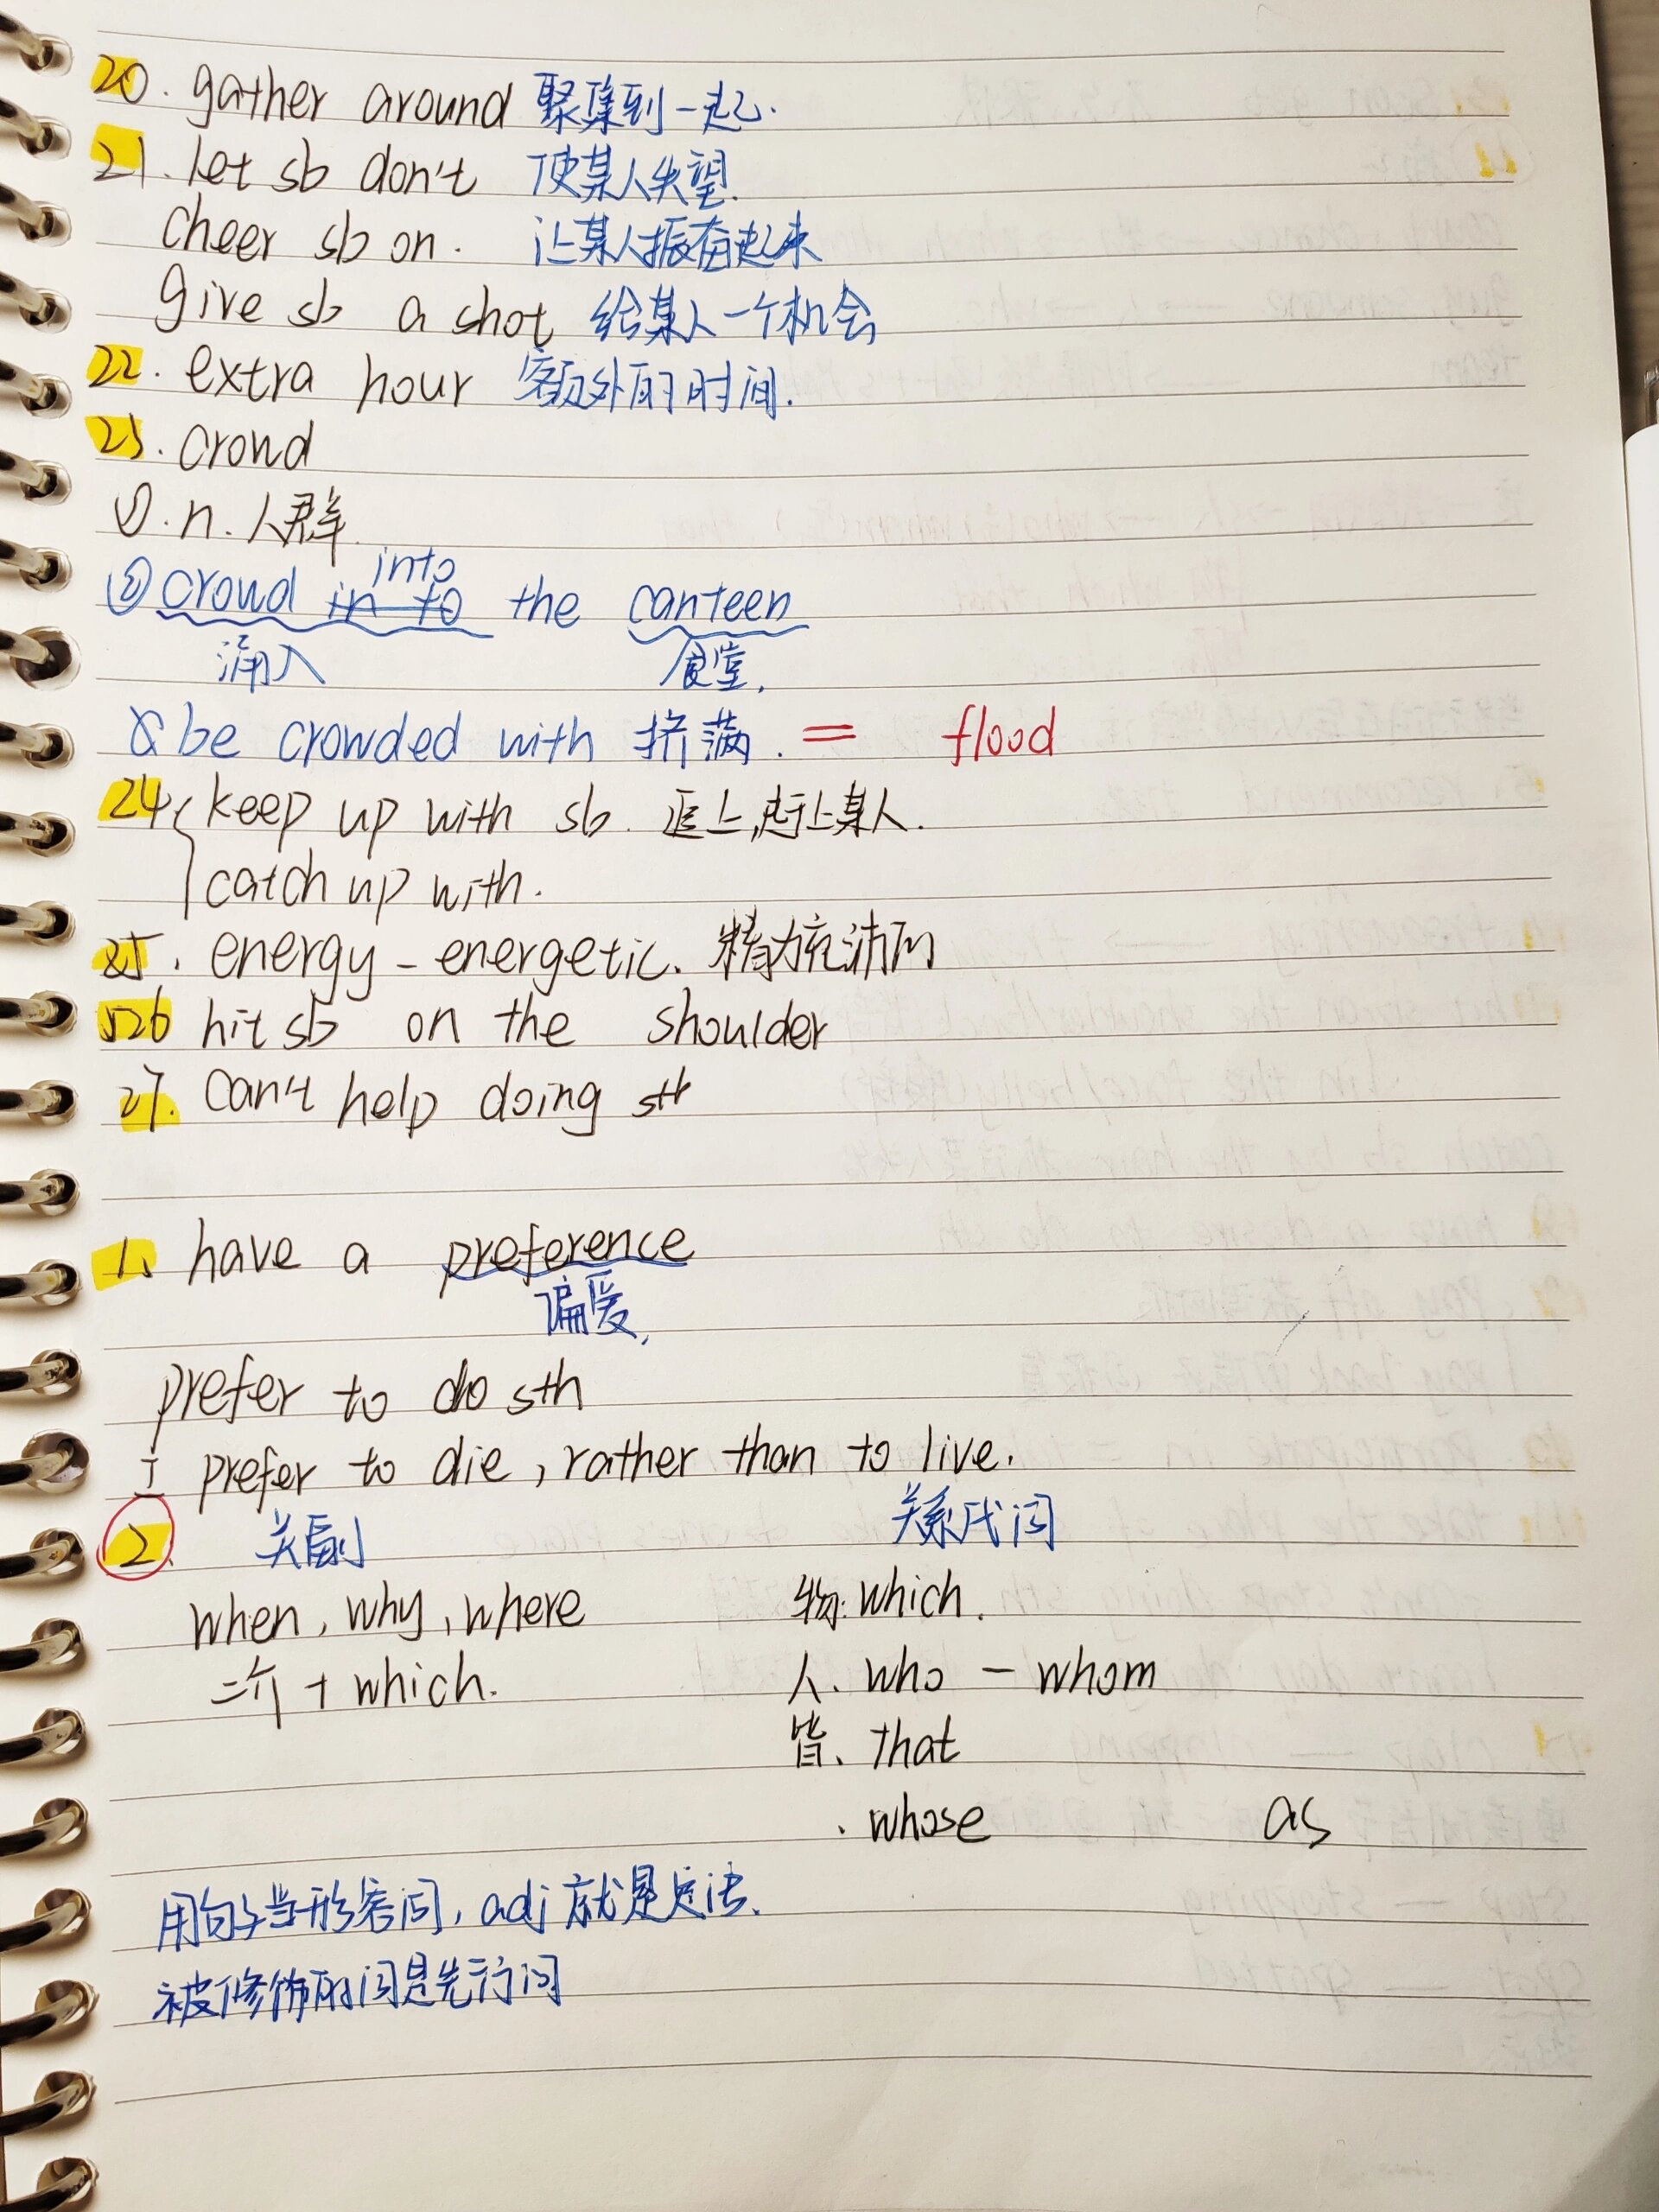 20. gather around 聚集到一起.
21. let sb don't 使某人失望.
cheer sb on. 让某人振奋起来
give sb a shot 给某人一个机会
22. extra hour 额外的时间.
23. crowd
①. n. 人群
into
② crowd in to the canteen
涌入 食堂.
& be crowded with 挤满. = flood
24 { keep up with sb. 追上,赶上某人.
catch up with.
25. energy - energetic. 精力充沛的
26 hit sb on the shoulder
27. can't help doing sth
1. have a preference
偏爱.
prefer to do sth
I prefer to die, rather than to live.
2. 关副 关系代词
when, why, where 物: which.
介 + which. 人. who - whom
皆. That
. whose as
用句子当形容词, adj 就是定法.
被修饰的词是先行词